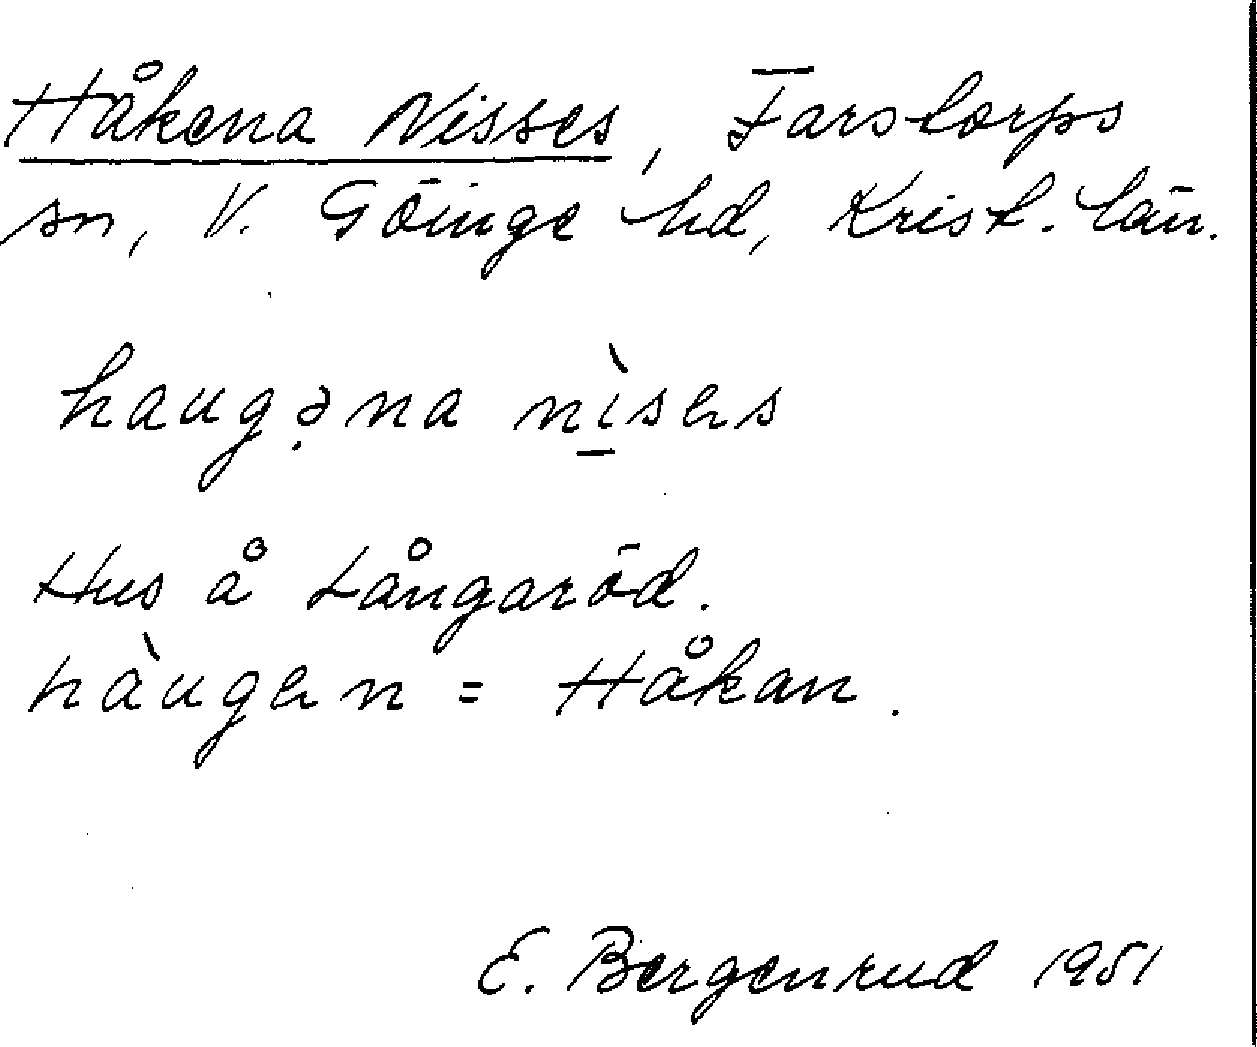 Håkena Nisses, Farstorps
sn, V. Göinge hd, Krist. län.
haugəna nìsɛs
Hus å Långaröd.
hàugɛn = Håkan.
E. Bergenrud 1951